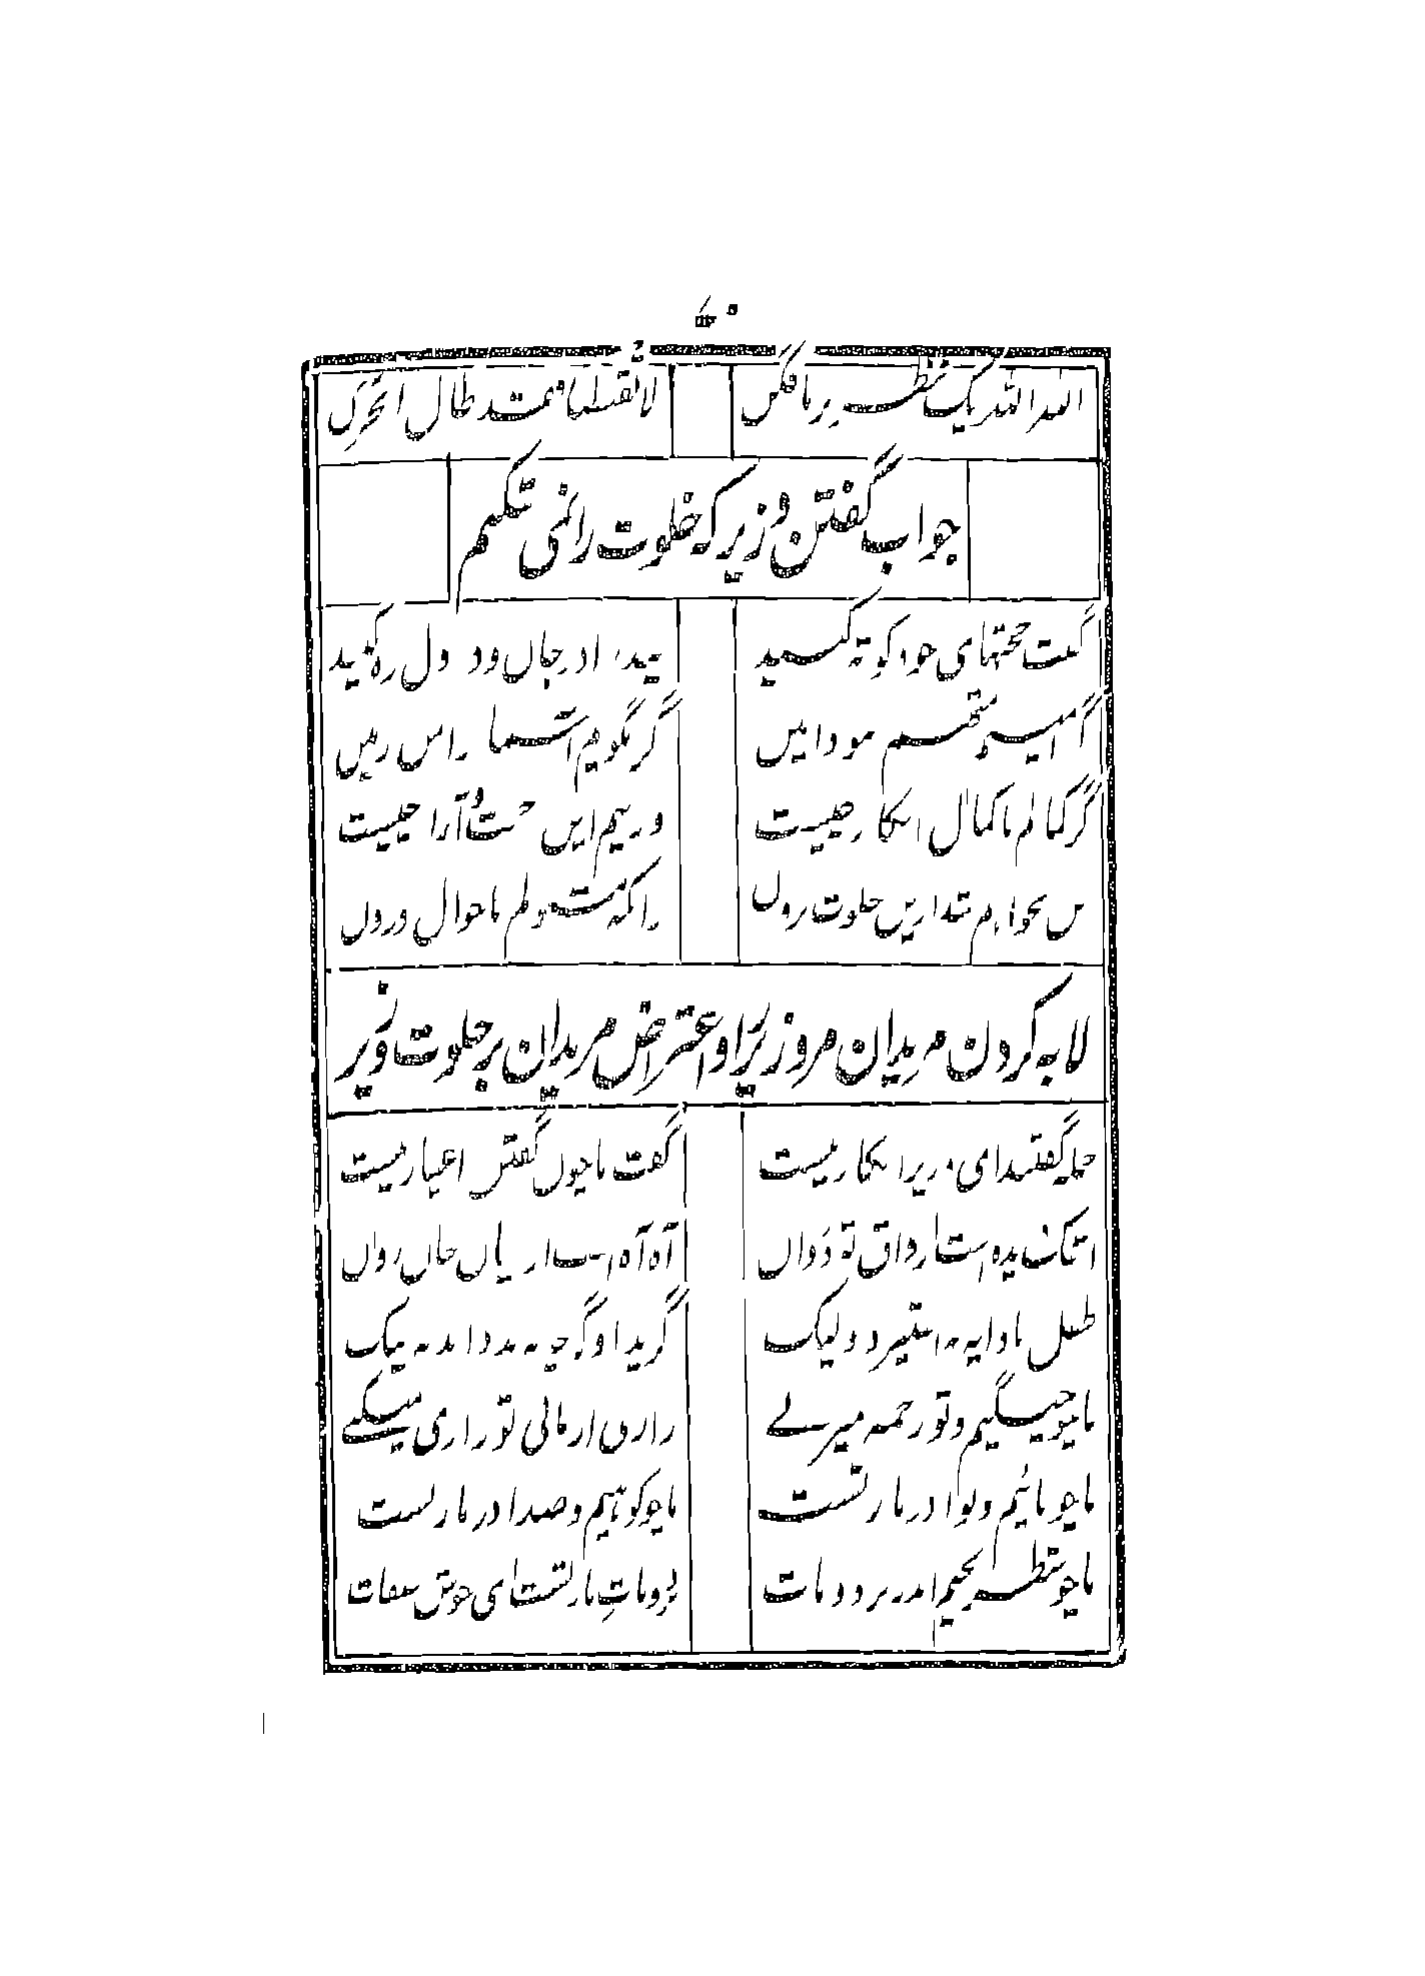 الله الله یک نظر بر ما فکن لا تقنطنا فقد طال الحزن
جواب گفتن وزیر که خلوت را نمی شکنم
گفت حجتهای خود کوته کنید پند را در جان و در دل ره کنید
گر امینم متهم نبود امین گر بگویم آسمان را من زمین
گر کمالم با کمال انکار چیست ور نیم این زحمت و آزار چیست
من نخواهم شد ازین خلوت برون زانکه مشغولم باحوال درون
لابه کردن مریدان مر وزیر را و اعتراض مریدان بر خلوت وزیر
جمله گفتند ای وزیر انکار نیست گفت ما چون گفتن اغیار نیست
اشک دیده است از فراق تو دوان آه آه است از میان جان روان
طفل با دایه نه استیزد ولیک گرید او گرچه نه بد داند نه نیک
ما چو چنگیم و تو زخمه میزنی زاری از ما نی تو زاری میکنی
ما چو نائیم و نوا در ما ز تست ما چو کوهیم و صدا در ما ز تست
ما چو شطرنجیم اندر برد و مات برد و مات ما ز تست ای خوش صفات